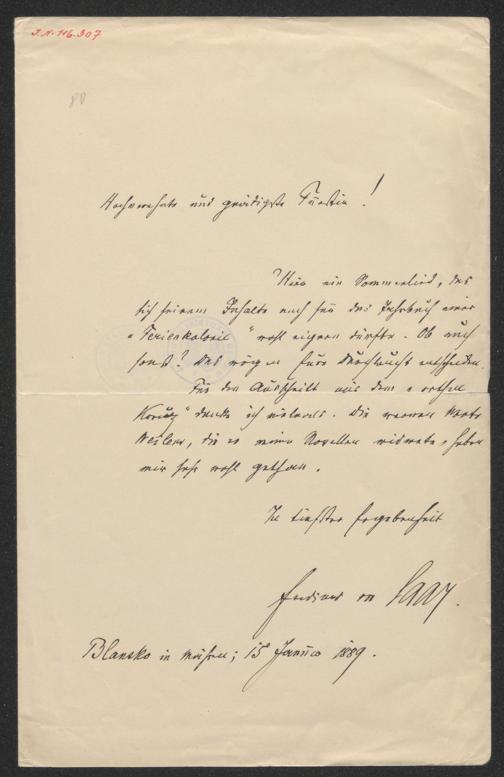 I.N. 146.307
80
Hochverehrte und gnädigste Fürstin!
Hier ein Sommerlied, das
sich seinem Inhalte nach für das Jahrbuch einer
„Ferienkolonie“ wohl eignen dürfte. Ob auch
sonst? Das mögen Eure Durchlaucht entscheiden.
Für den Ausschnitt aus dem „
Kreuz“ danke ich vielmals. Die warmen Worte
, die er meinen Novellen widmete, haben
mir sehr wohl gethan.
In tiefster Ergebenheit
Ferdinand von Saar.
Blansko in Mähren; 15 Januar 1889.